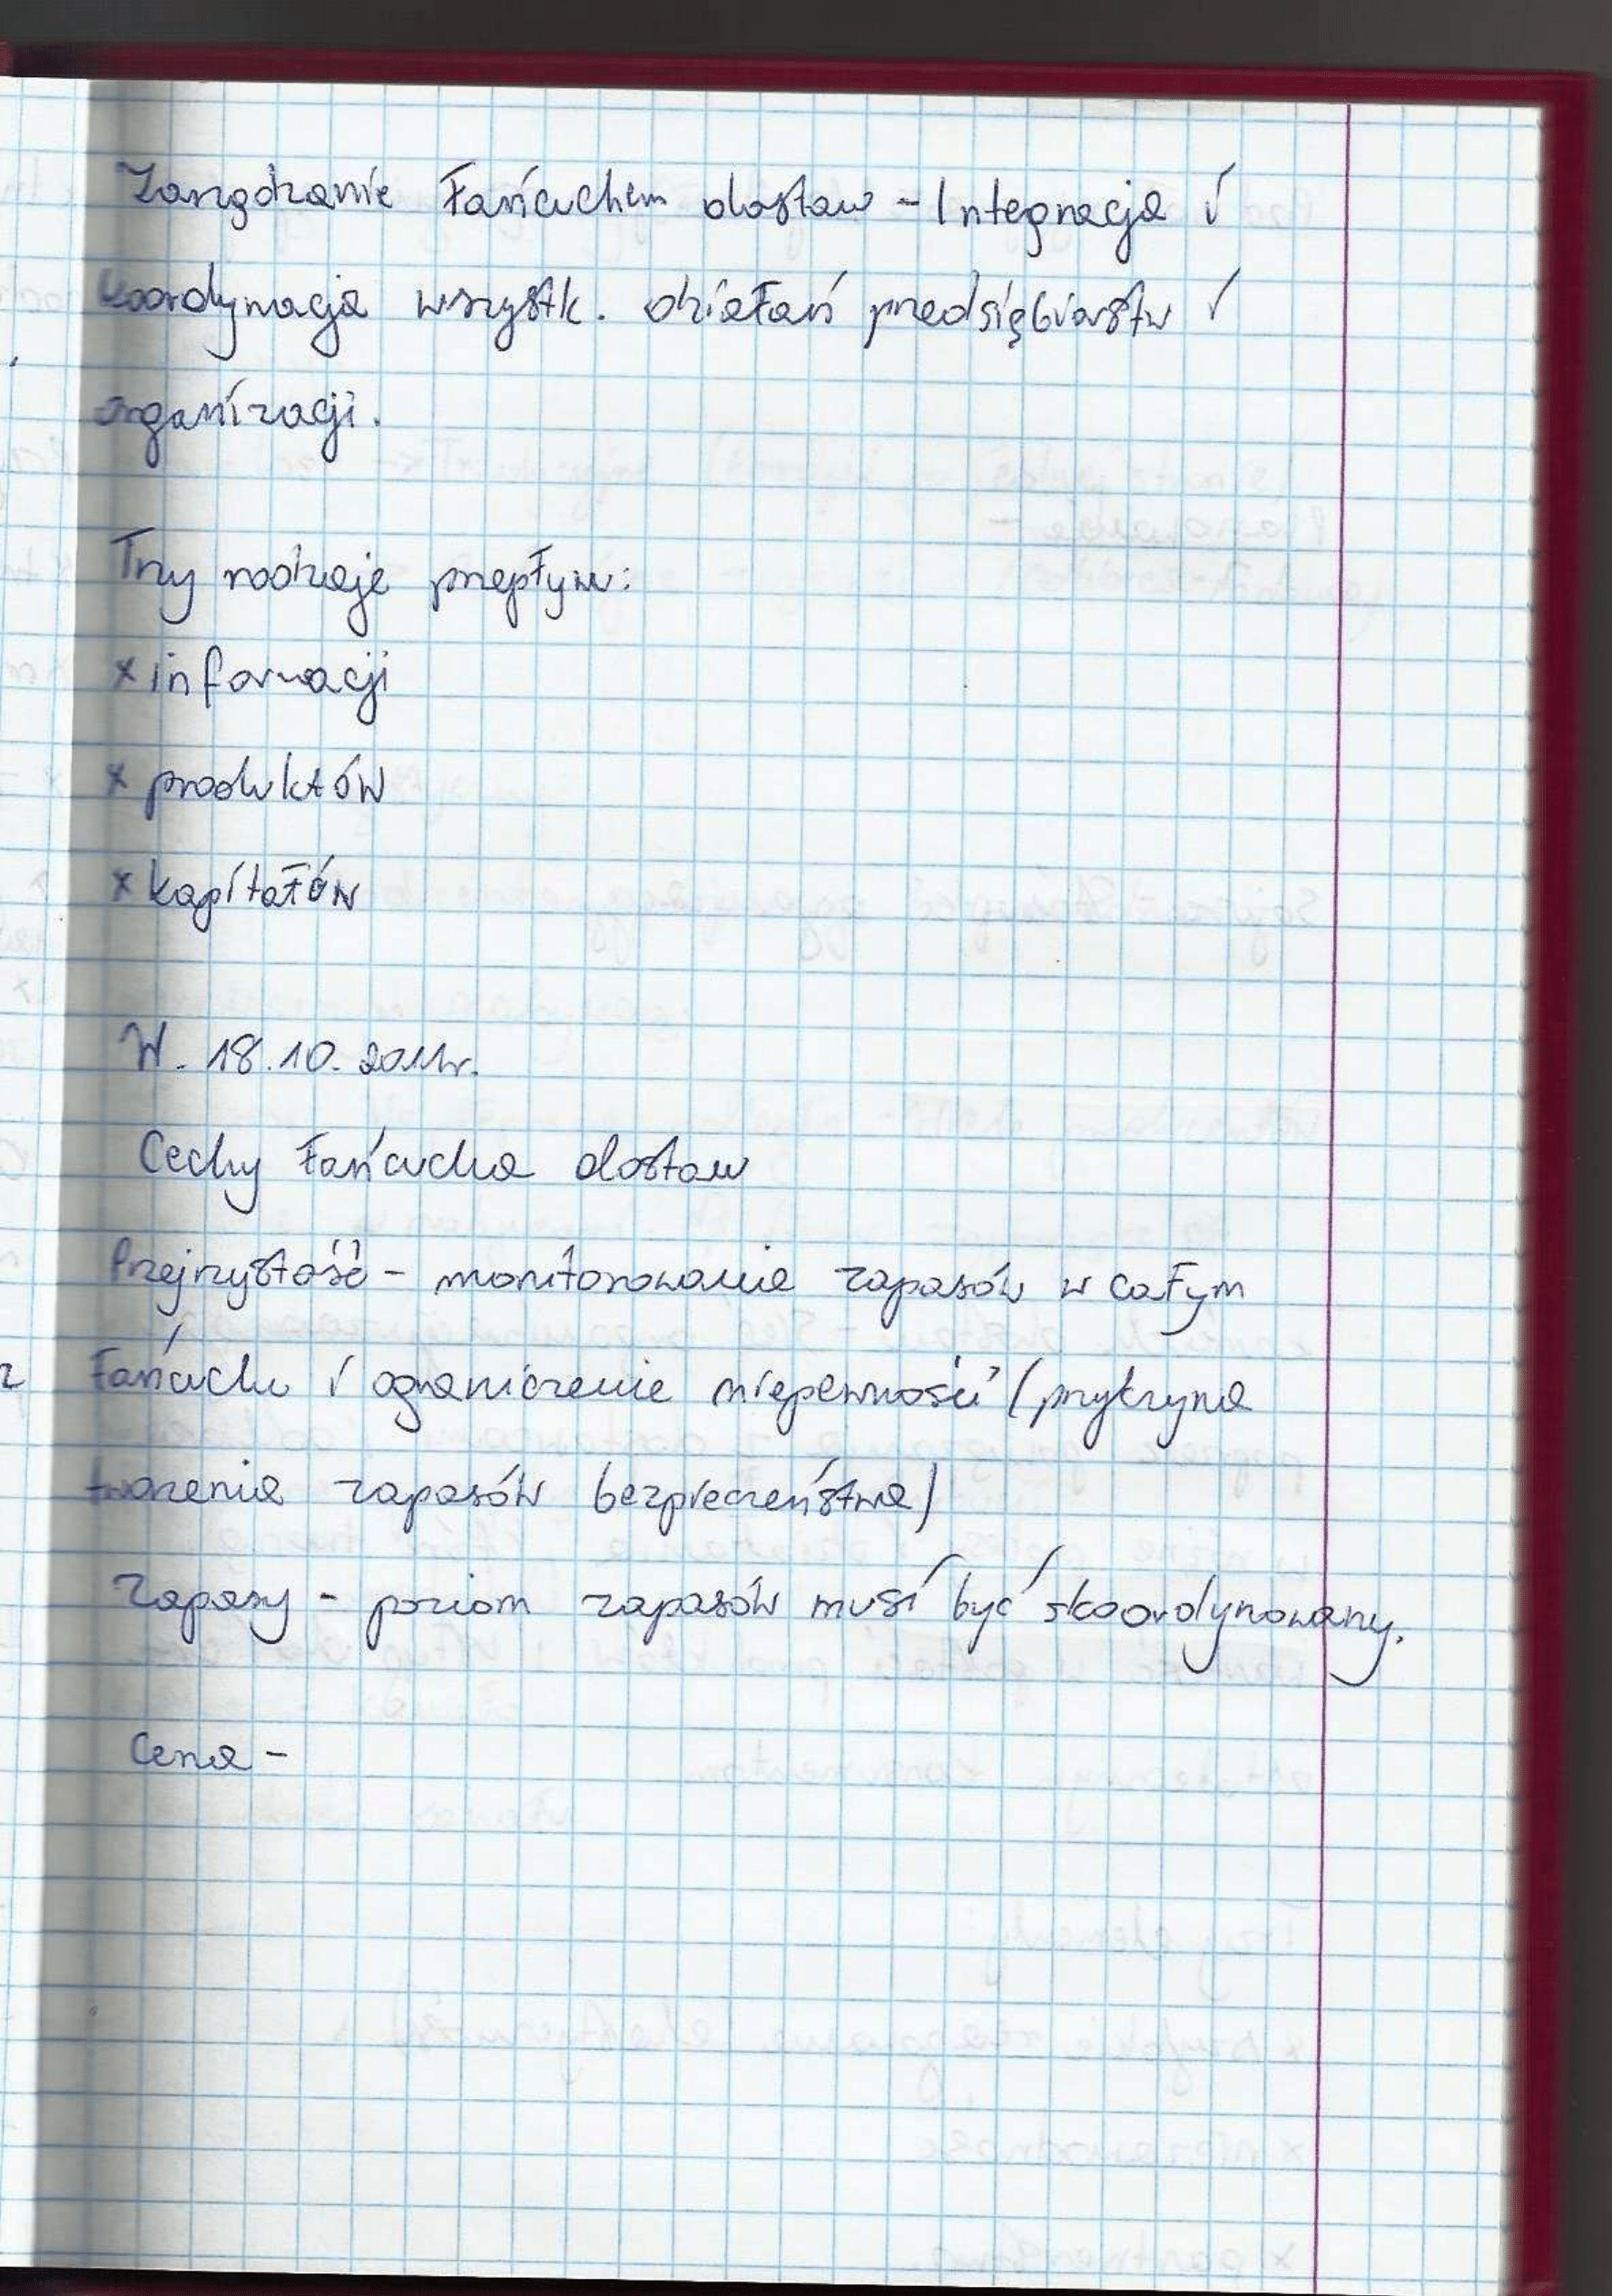 Zarządzanie łańcuchem dostaw - Integracja i
koordynacja wszystk. działań przedsiębiorstw i
organizacji.
Trzy rodzaje przepływ:
x informacji
x produktów
x kapitałów
W. 18.10.2011r.
Cechy łańcucha dostaw
Przejrzystość - monitorowanie zapasów w całym
łańcuchu i ograniczenie niepewności (przykrzyna
tworzenia zapasów bezpieczeństwa)
Zapasy - poziom zapasów musi być skoordynowany.
Cena -